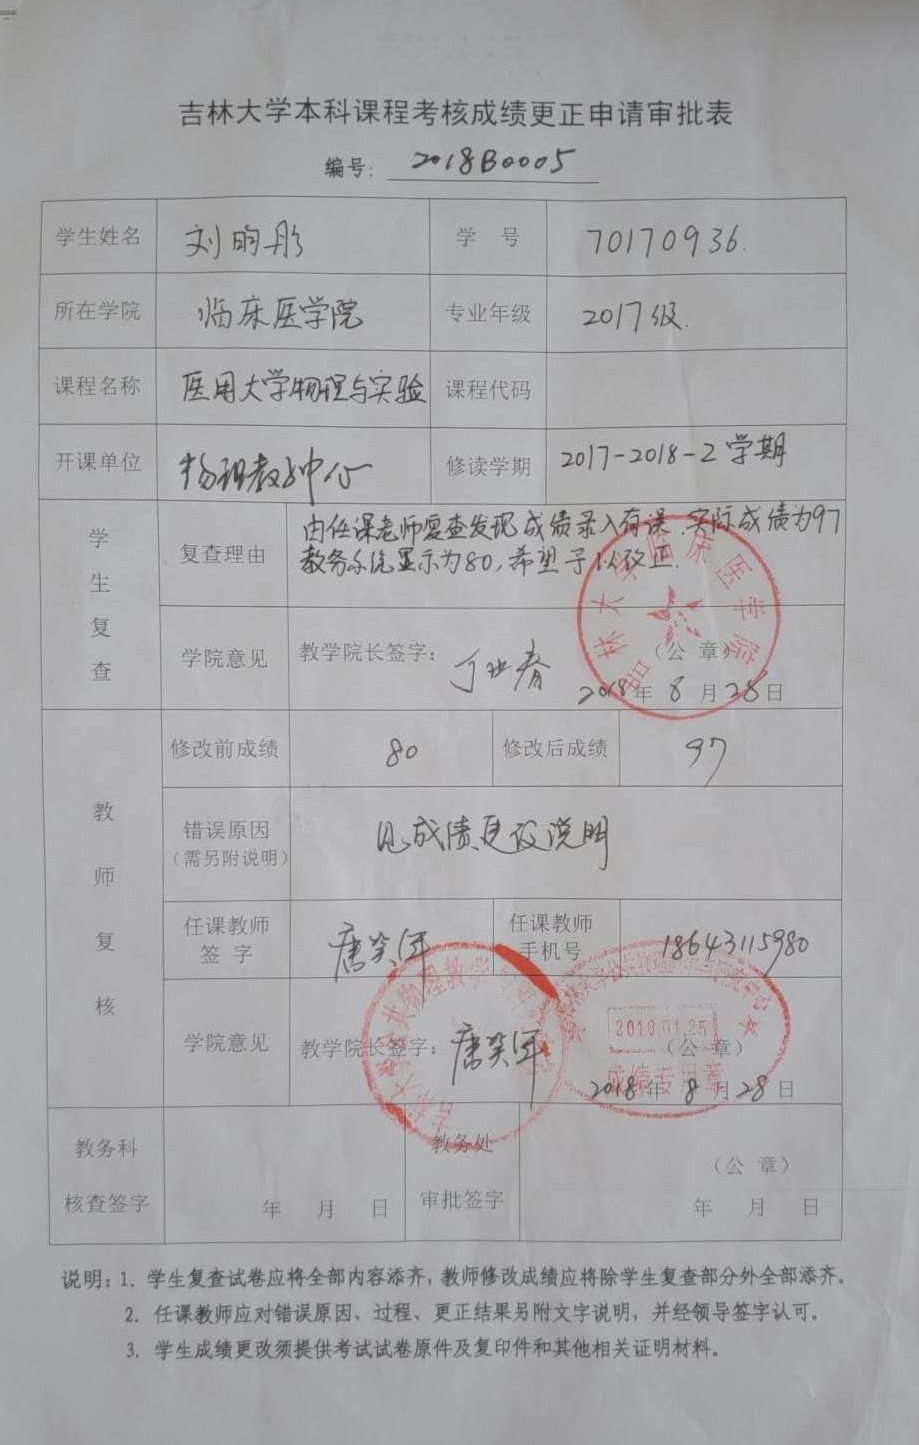 吉林大学本科课程考核成绩更正申请审批表
编号: 2018B0005
学生姓名 刘昀彤 学 号 70170936.
所在学院 临床医学院 专业年级 2017级.
课程名称 医用大学物理与实验 课程代码
开课单位 物理教学中心 修读学期 2017-2018-2学期
学生复查
复查理由 由任课老师复查发现成绩录入有误.实际成绩为97
教务系统显示为80,希望予以改正.
学院意见 教学院长签字: (公 章)
2018年 8 月 28日
吉林大学临床医学院
教师复核
修改前成绩 80 修改后成绩 97
错误原因 见成绩更改说明
(需另附说明)
任课教师 任课教师
签 字 手机号 18643115980
学院意见 教学院长签字: (公 章)
2018.01.25
成绩专用章
2018年 8 月 28 日
教务科 教务处
(公 章)
核查签字 年 月 日 审批签字 年 月 日
说明: 1. 学生复查试卷应将全部内容添齐,教师修改成绩应将除学生复查部分外全部添齐。
2. 任课教师应对错误原因、过程、更正结果另附文字说明,并经领导签字认可。
3. 学生成绩更改须提供考试试卷原件及复印件和其他相关证明材料。